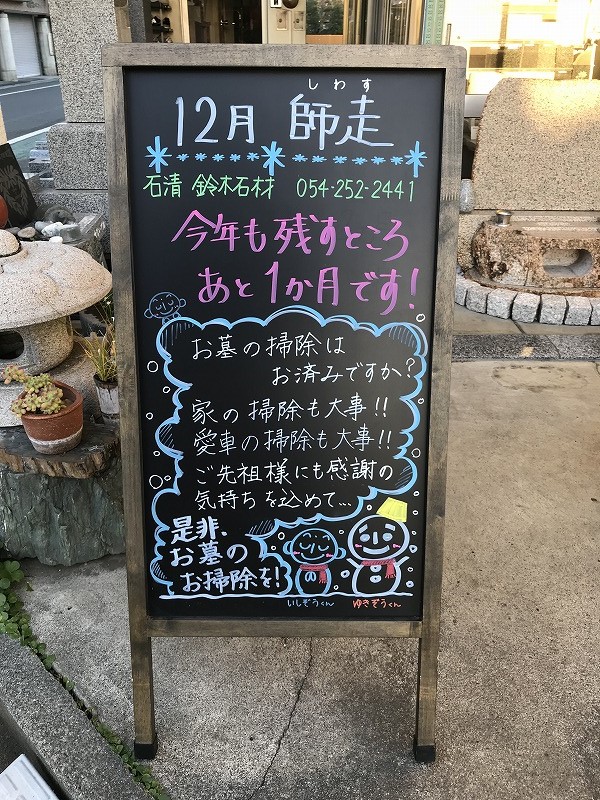 しわす
12月 師走
石清 鈴木石材 054-252-2441
今年も残すところ
あと1か月です!
お墓の掃除は
お済みですか?
家の掃除も大事!!
愛車の掃除も大事!!
ご先祖様にも感謝の
気持ちを込めて...
是非、
お墓の
お掃除を!
いしぞうくん
ゆきぞうくん